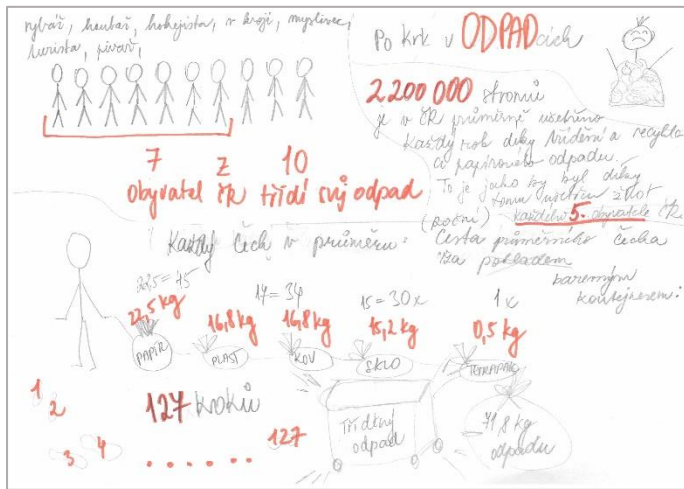 rybář, houbař, hokejista, v kroji, myslivec,
turista, pivař,
7 z 10
obyvatel ČR třídí svůj odpad
Po krk v ODPADcích
2 200 000 stromů
je v ČR průměrně ušetřeno
každý rok díky třídění a recykla
ci papírového odpadu.
To je jako by byl díky
tomu ušetřen život
(roční) každého 5. obyvatele ČR
Každý Čech v průměru:
Cesta průměrného Čecha
za pokladem
barevným
kontejnerem:
22,5 = 45
17 = 34
15 = 30x
1x
22,5 kg
16,8 kg
16,8 kg
15,2 kg
0,5 kg
PAPÍR
PLAST
KOV
SKLO
TETRAPAK
1
2
3
4
127 kroků
127
Tříděný
odpad
71,8 kg
odpadu